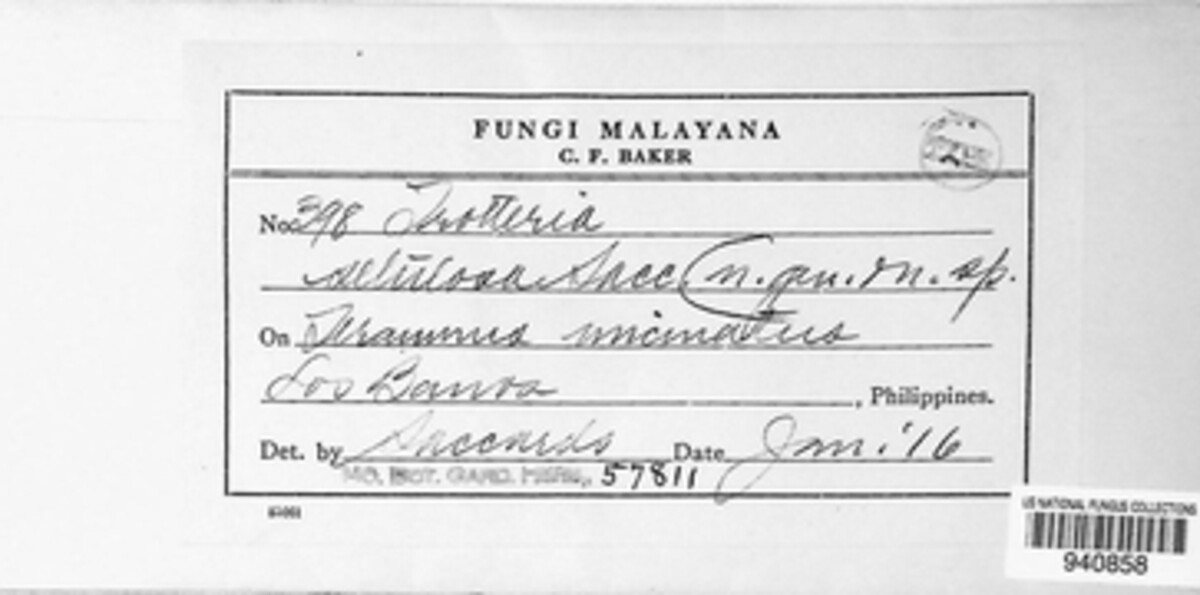 FUNGI MALAYANA
C. F. BAKER
No. 398 Trotteria
Sacc. (n. gen. & n. sp.
On uncinatus
Los Banos, Philippines.
Det. by Saccardo Date Jan. '16
MO. BOT. GARD. HERB., 57811
US NATIONAL FUNGUS COLLECTIONS
940858